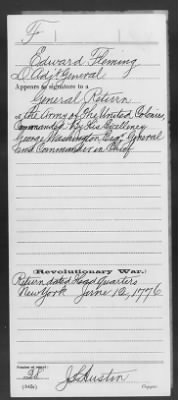 F
Edward Fleming
D. Adjt General
Appears as signature to a
General Return
of the Army of the United Colonies,
Commanded By His Excellency
George Washington Esqr. General
and Commander in Chief
(Revolutionary War.)
Return dated Head Quarters
New York June 12, 1776
Number of record:
20
J. G. Austin
Copyist.